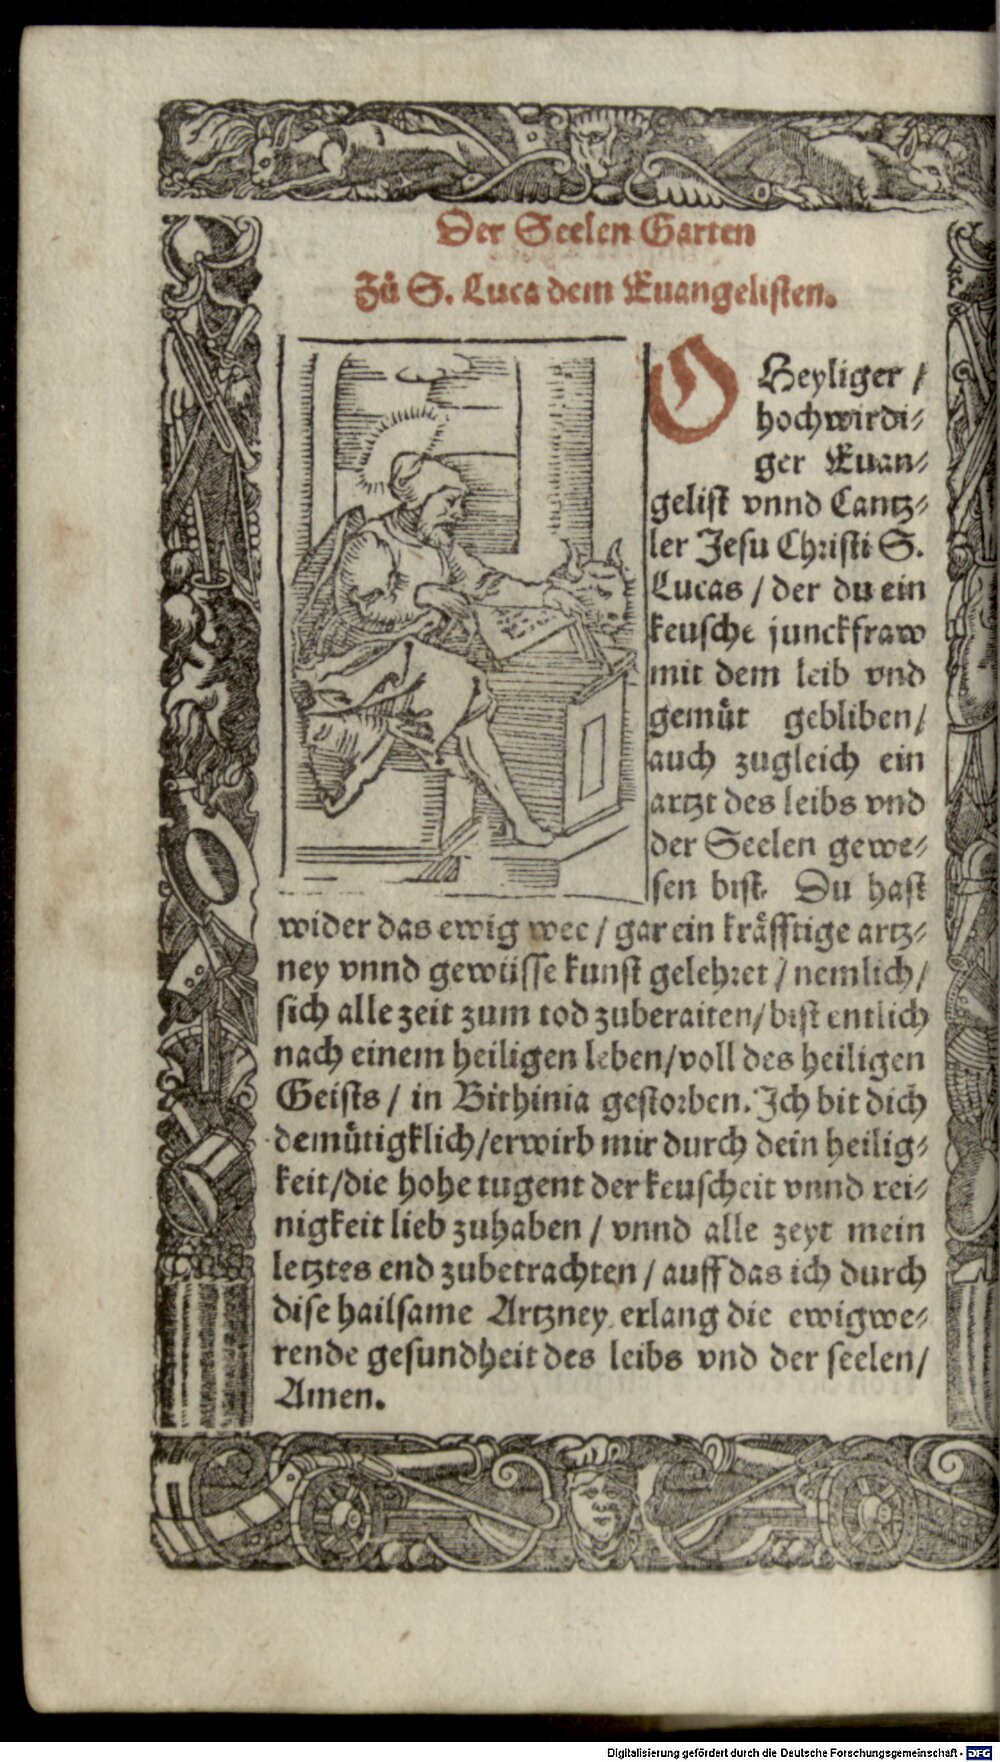 Der Seelen Garten
Zů S. Luca dem Euangelisten.
O Heyliger /
hochwirdi⸗
ger Euan⸗
gelist vnnd Cantz⸗
ler Jesu Christi S.
Lucas / der du ein
keusche junckfraw
mit dem leib vnd
gemůt gebliben/
auch zugleich ein
artzt des leibs vnd
der Seelen gewe⸗
sen bist. Du hast
wider das ewig wee / gar ein kräfftige artz⸗
ney vnnd gewüsse kunst gelehret / nemlich/
sich alle zeit zum tod zuberaiten/bist entlich
nach einem heiligen leben/voll des heiligen
Geists / in Bithinia gestorben. Ich bit dich
demütigklich/erwirb mir durch dein heilig⸗
keit/die hohe tugent der keuscheit vnnd rei⸗
nigkeit lieb zuhaben / vnnd alle zeyt mein
letztes end zubetrachten / auff das ich durch
dise hailsame Artzney erlang die ewigwe⸗
rende gesundheit des leibs vnd der seelen/
Amen.
Digitalisierung gefördert durch die Deutsche Forschungsgemeinschaft - DFG